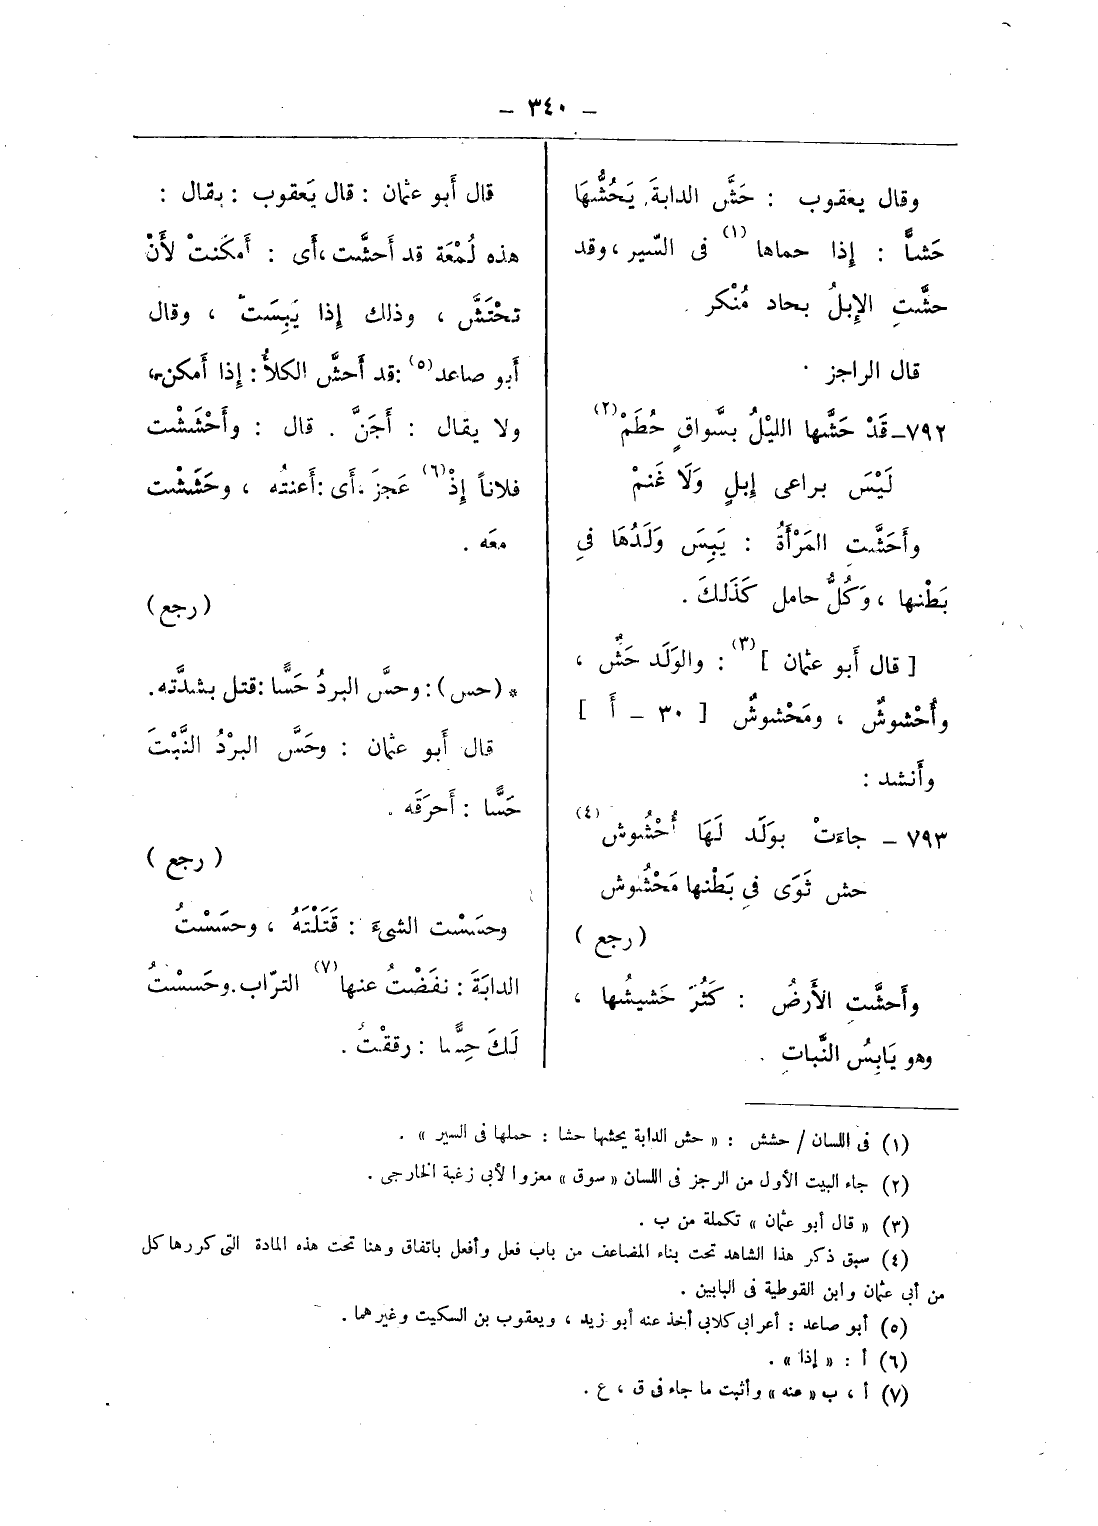 – ٣٤٠ –
وقال يعقوب : حَشَّ الدابةَ يَحُشُّهَا
حَشاًّ : إذا حماها (١) فى السّير ، وقد
حشَّتِ الإبلُ بحاد مُنْكر .
قال الراجز .
٧٩٢ــ قَدْ حَشَّها الليْلُ بسَّواقٍ حُطَمْ (٢)
لَيْسَ براعى إبلٍ وَلَا غَنمْ
وأَحَشَّتِ المَرْأَةُ : يَبِسَ وَلَدُهَا فى
بَطْنها ، وَكُلُّ حامل كَذَلكَ .
[ قال أَبو عثمان ] (٣) : والوَلَد حَشٌّ ،
وأُحْشوشٌ ، ومَحْشوشٌ [ ٣٠ – أَ ]
وأَنشد :
٧٩٣ – جاءَتْ بوَلَد لَهَا أُحْشُوش (٤)
حش ثَوَى فى بَطْنها مَحْشُوش
( رجع )
وأَحشَّتِ الأَرضُ : كَثُرَ حَشيشُها ،
وهو يَابِسُ النَّباتِ .
قال أَبو عثمان : قال يَعقوب : يقال :
هذه لُمْعَة قد أَحشَّت ، أَى : أَمكَنتْ لأَنْ
تحْتَشَّ ، وذلك إذا يَبِسَت ، وقال
أَبو صاعد (٥) : قد أَحشَّ الكلأُ : إذا أَمكن ،
ولا يقال : أَجَنَّ . قال : وأَحْشَشْت
فلاناً إذْ (٦) عَجزَ ، أَى : أَعنتُه ، وحَشَشْت
معَه .
( رجع )
* ( حس ) : وحسَّ البردُ حَسًّا : قتل بشدَّته .
قال أَبو عثمان : وحَسَّ البرْدُ النَّبْتَ
حَسًّا : أَحرَقَه .
( رجع )
وحسَسْت الشىءَ : قَتَلْتَهُ ، وحسَسْتُ
الدابَةَ : نفَضْتُ عنها (٧) الترّاب . وحَسسْتُ
لَكَ حِسًّا : رققْتُ .
(١) فى اللسان / حشش : « حش الدابة يحشها حشا : حملها فى السير » .
(٢) جاء البيت الأول من الرجز فى اللسان « سوق » معزوا لأبى زغبة الخارجى .
(٣) « قال أبو عثمان » تكملة من ب .
(٤) سبق ذكر هذا الشاهد تحت بناء المضاعف من باب فعل وأفعل باتفاق وهنا تحت هذه المادة التى كررها كل
من أبى عثمان وابن القوطية فى البابين .
(٥) أبو صاعد : أعرابى كلابى أخذ عنه أبو زيد ، ويعقوب بن السكيت وغيرهما .
(٦) أ : « إذا » .
(٧) أ ، ب « عنه » وأثبت ما جاء فى ق ، ع .